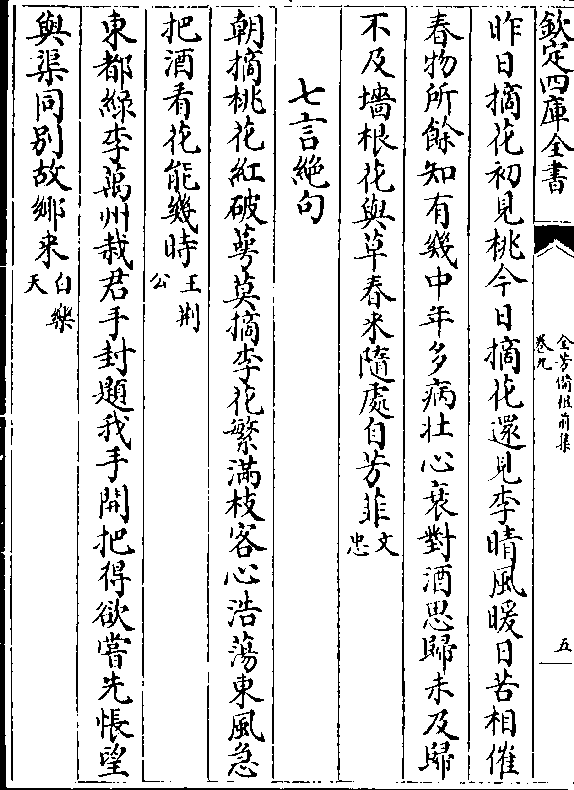 欽定四庫全書
全芳備祖前集
卷九
五
昨日摘花初見桃今日摘花還見李晴風暖日苦相催
春物所餘知有幾中年多病壯心衰對酒思歸未及歸
不及墻根花與草春来隨處自芳菲文忠
七言絶句
朝摘桃花紅破萼莫摘李花繁滿枝客心浩蕩東風急
把酒看花能幾時王荆公
東都綠李萬州栽君手封題我手開把得欲嘗先悵望
與渠同别故鄉来白樂天